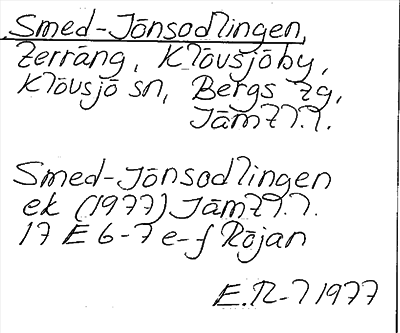 Smed-Jönsodlingen,
terräng, Klövsjöby,
Klövsjö sn, Bergs tg,
Jämtl.l.
Smed-Jönsodlingen
ek (1977) Jämtl.l.
17 E 6-7 e-f Röjan
E.N-l 1977